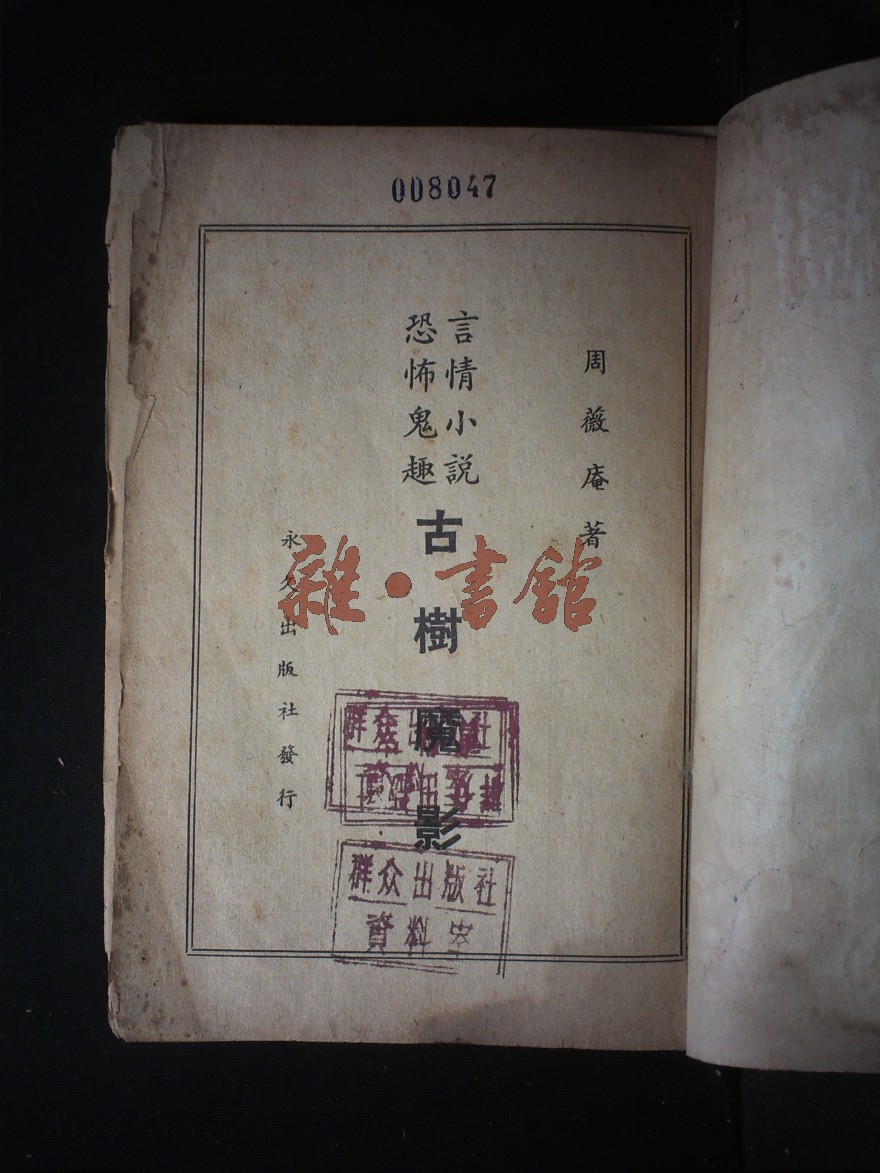 008047
周薇庵著
言情小説
恐怖鬼趣
古樹魔影
永久出版社發行
雜·書館
群众出版社
群众出版社
群众出版社
資料室